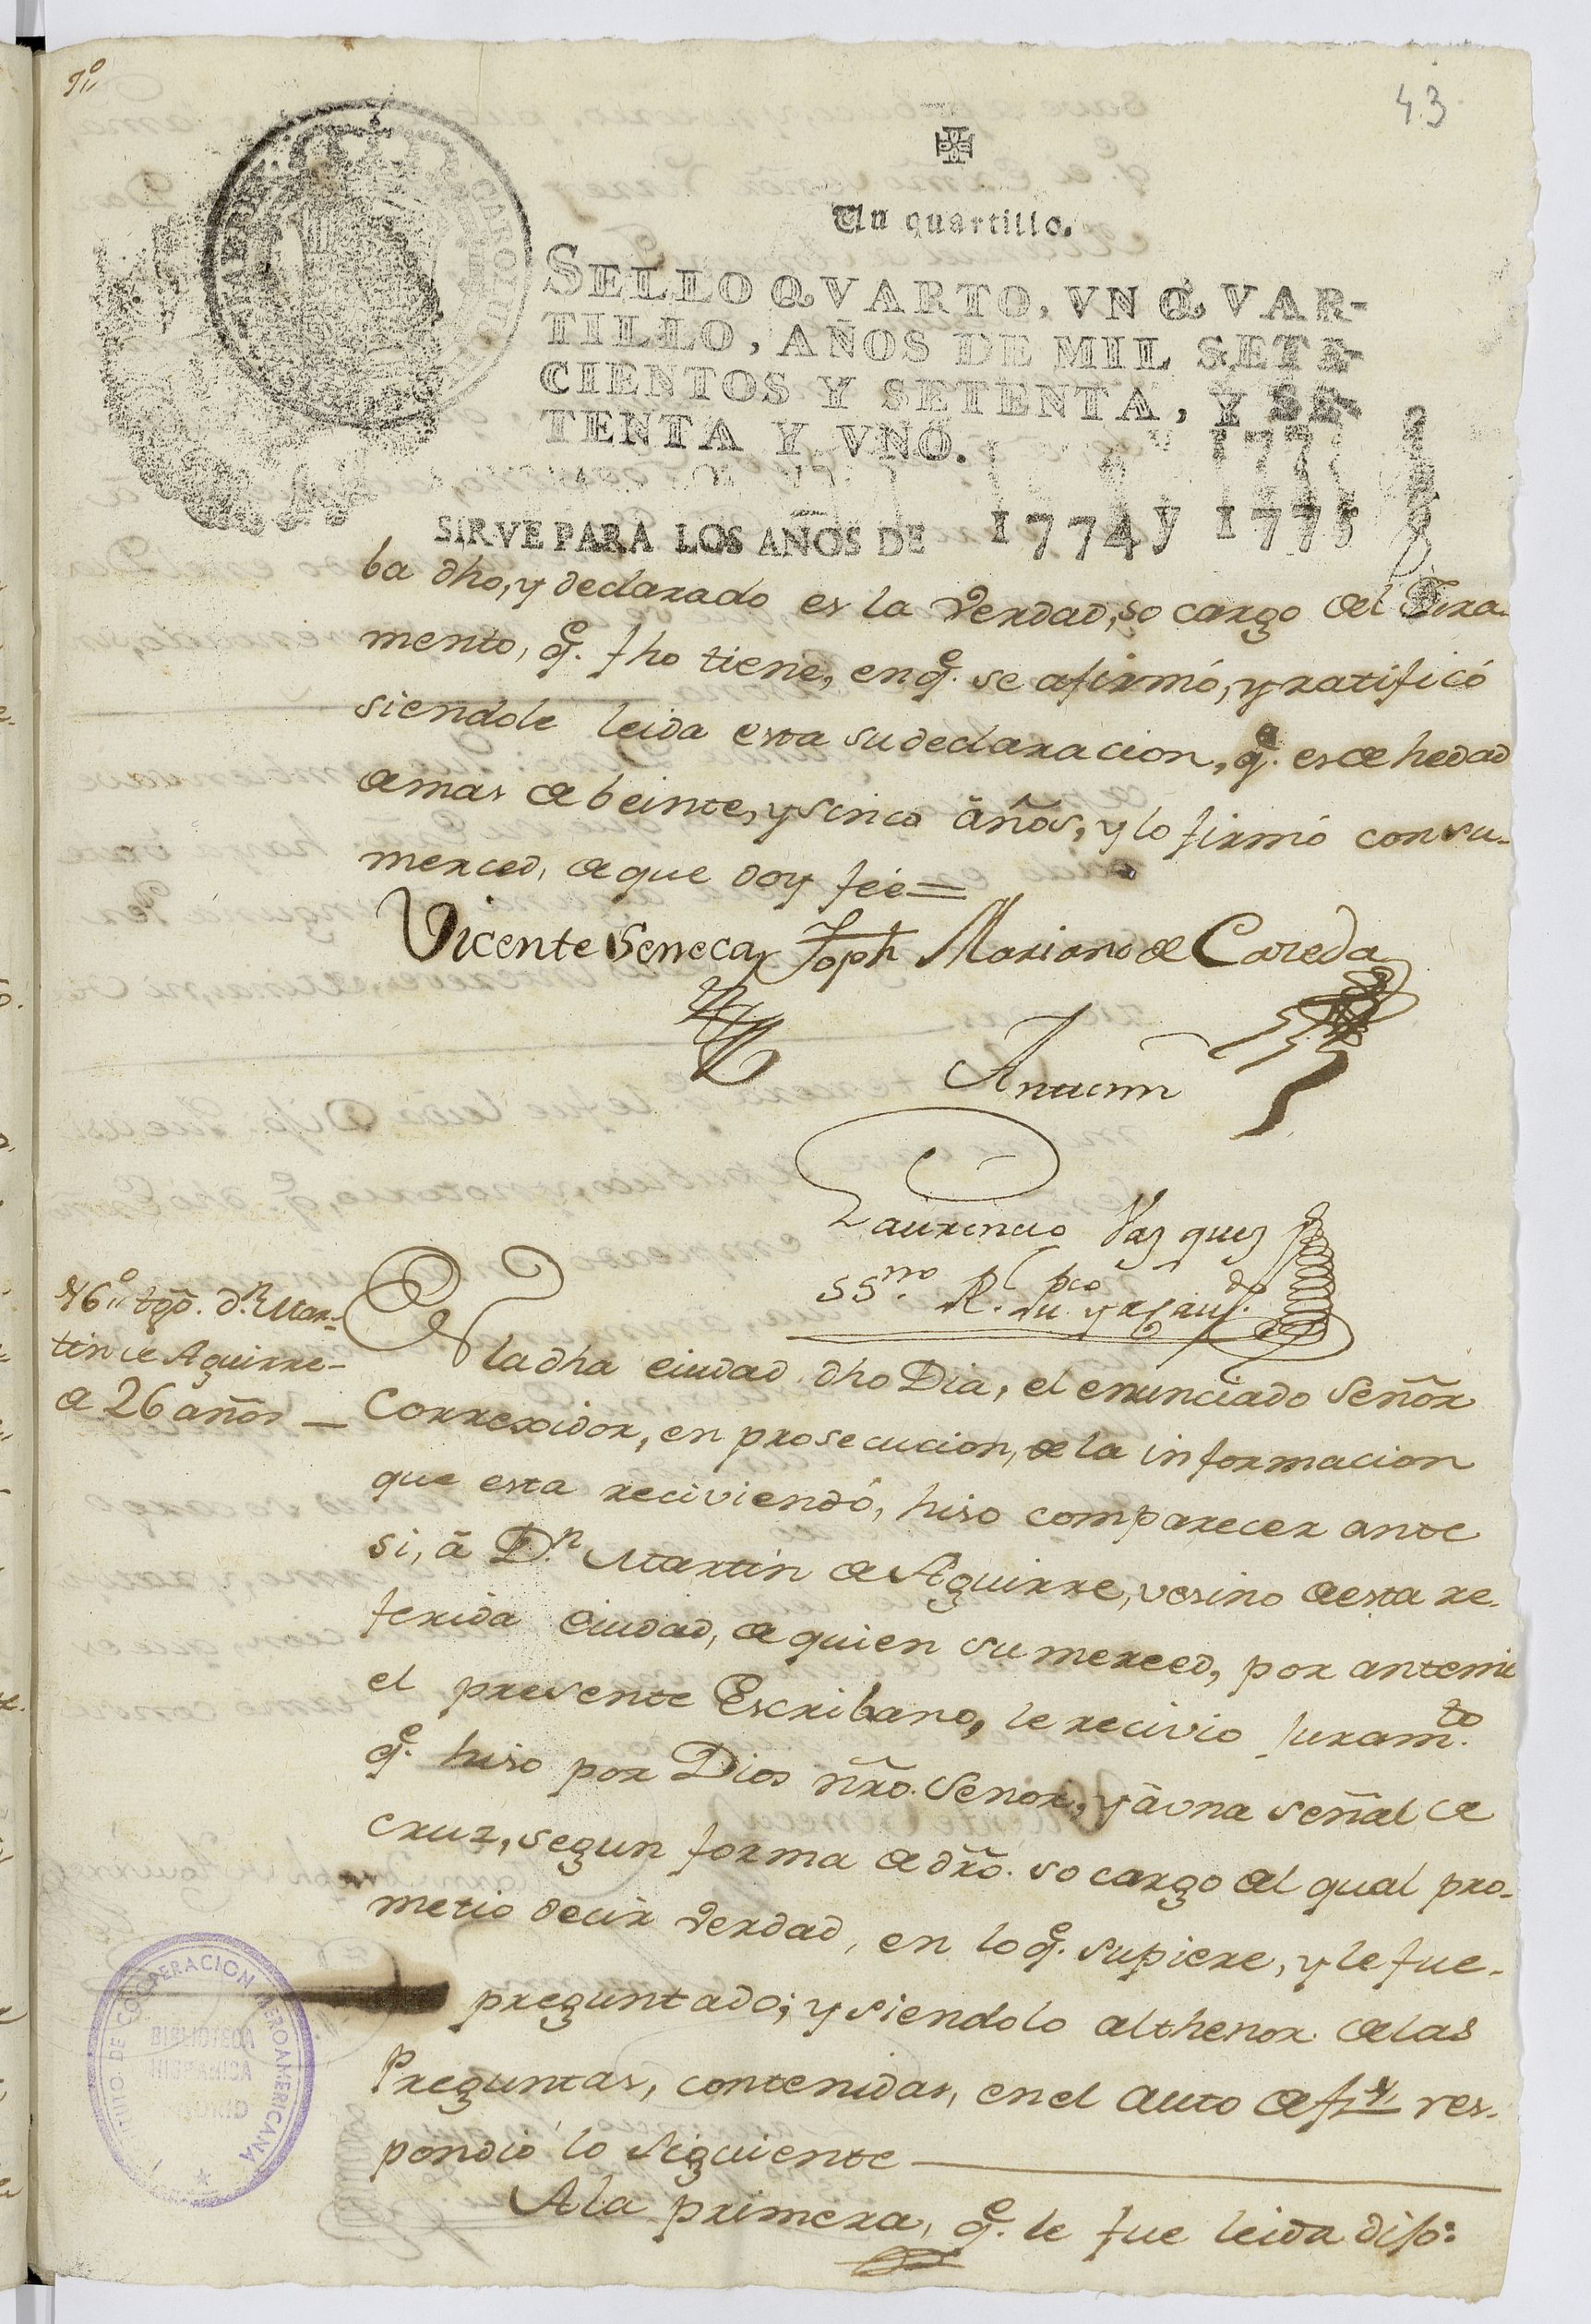 43
Un quartillo.
SELLO QVARTO, VN QVAR-
TILLO, AÑOS DE MIL SETE-
CIENTOS Y SETENTA, Y SE-
TENTA Y VNO.
SIRVE PARA LOS AÑOS DE 1774 y 1775
ba dho, y declarado es la verdad, so cargo del Jura-
mento, qe. fho tiene, en qe. se afirmó, y ratificó
siendole leida esta su declaracion, qe. es de hedad
de mas de beinte, y sinco años, y lo firmó con su-
merced, de que doy feé=
Vicente Seneca Joph Mariano de Careda
Antemi
Laurencio Vazquez
SSno. Rl. pco
46º tgõ. dn. Mar-
tin de Aguirre-
de 26 años —
En la dha ciudad dho Dia, el enunciado Señor
Correxidor, en prosecucion, de la informacion
que esta reciviendo, hiso comparecer ante
si, á Dn. Martin de Aguirre, vesino de esta re-
ferida ciudad, de quien su merced, por antemi
el presente Escribano, le recivio juramto.
qe. hiso por Dios ñro. Señor, y á una señal de
cruz, segun forma de dr̃o. so cargo del qual pro-
metio decir verdad, en lo qe. supiere, y le fue-
preguntado; y siendolo al thenor de las
Preguntas, contenidas, en el auto de f. res-
pondió lo siguiente
A la primera, qe. le fue leida dijo:
INSTITUTO DE COOPERACION IBEROAMERICANA
BIBLIOTECA
HISPANICA
MADRID